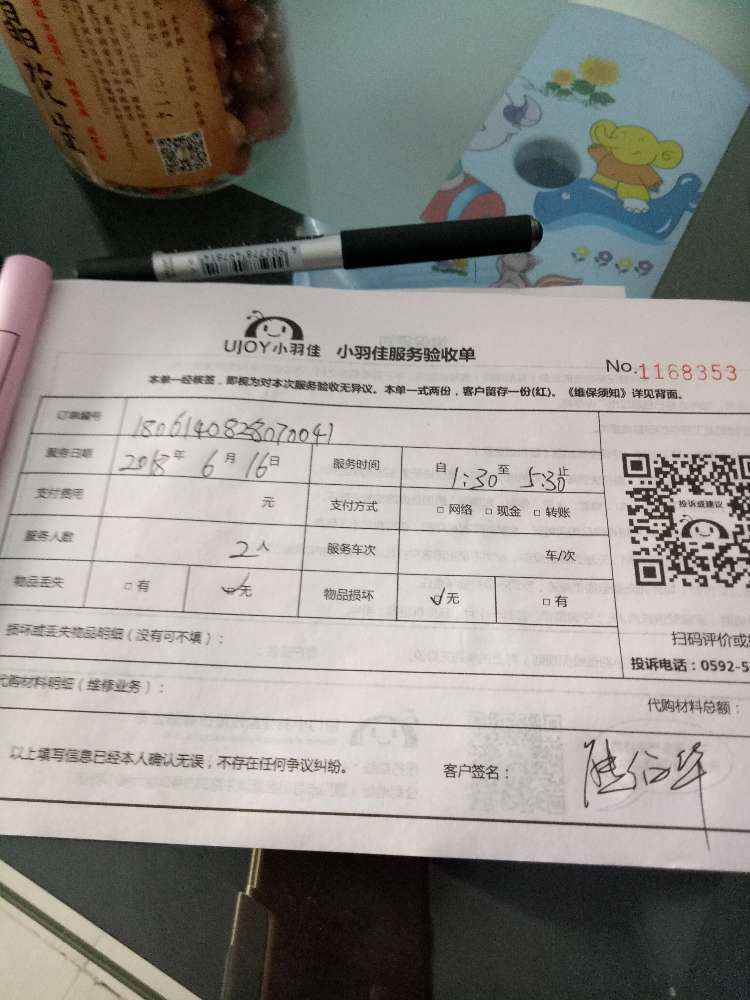 4902778497814
UJOY小羽佳 小羽佳服务验收单
No.1168353
本单一经核签，即视为对本次服务验收无异议。本单一式两份，客户留存一份(红)。《维保须知》详见背面。
订单编号 180614082807004
服务日期 2018年6月16日 服务时间 自1:30至5:30止
支付费用 元 支付方式 □网络 □现金 □转账
服务人数 2人 服务车次 车/次
物品丢失 □有 ☑无 物品损坏 ☑无 □有
投诉或建议
损坏或丢失物品明细（没有可不填）：
扫码评价或
投诉电话：0592-5
代购材料明细（维修业务）：
代购材料总额：
以上填写信息已经本人确认无误，不存在任何争议纠纷。 客户签名：